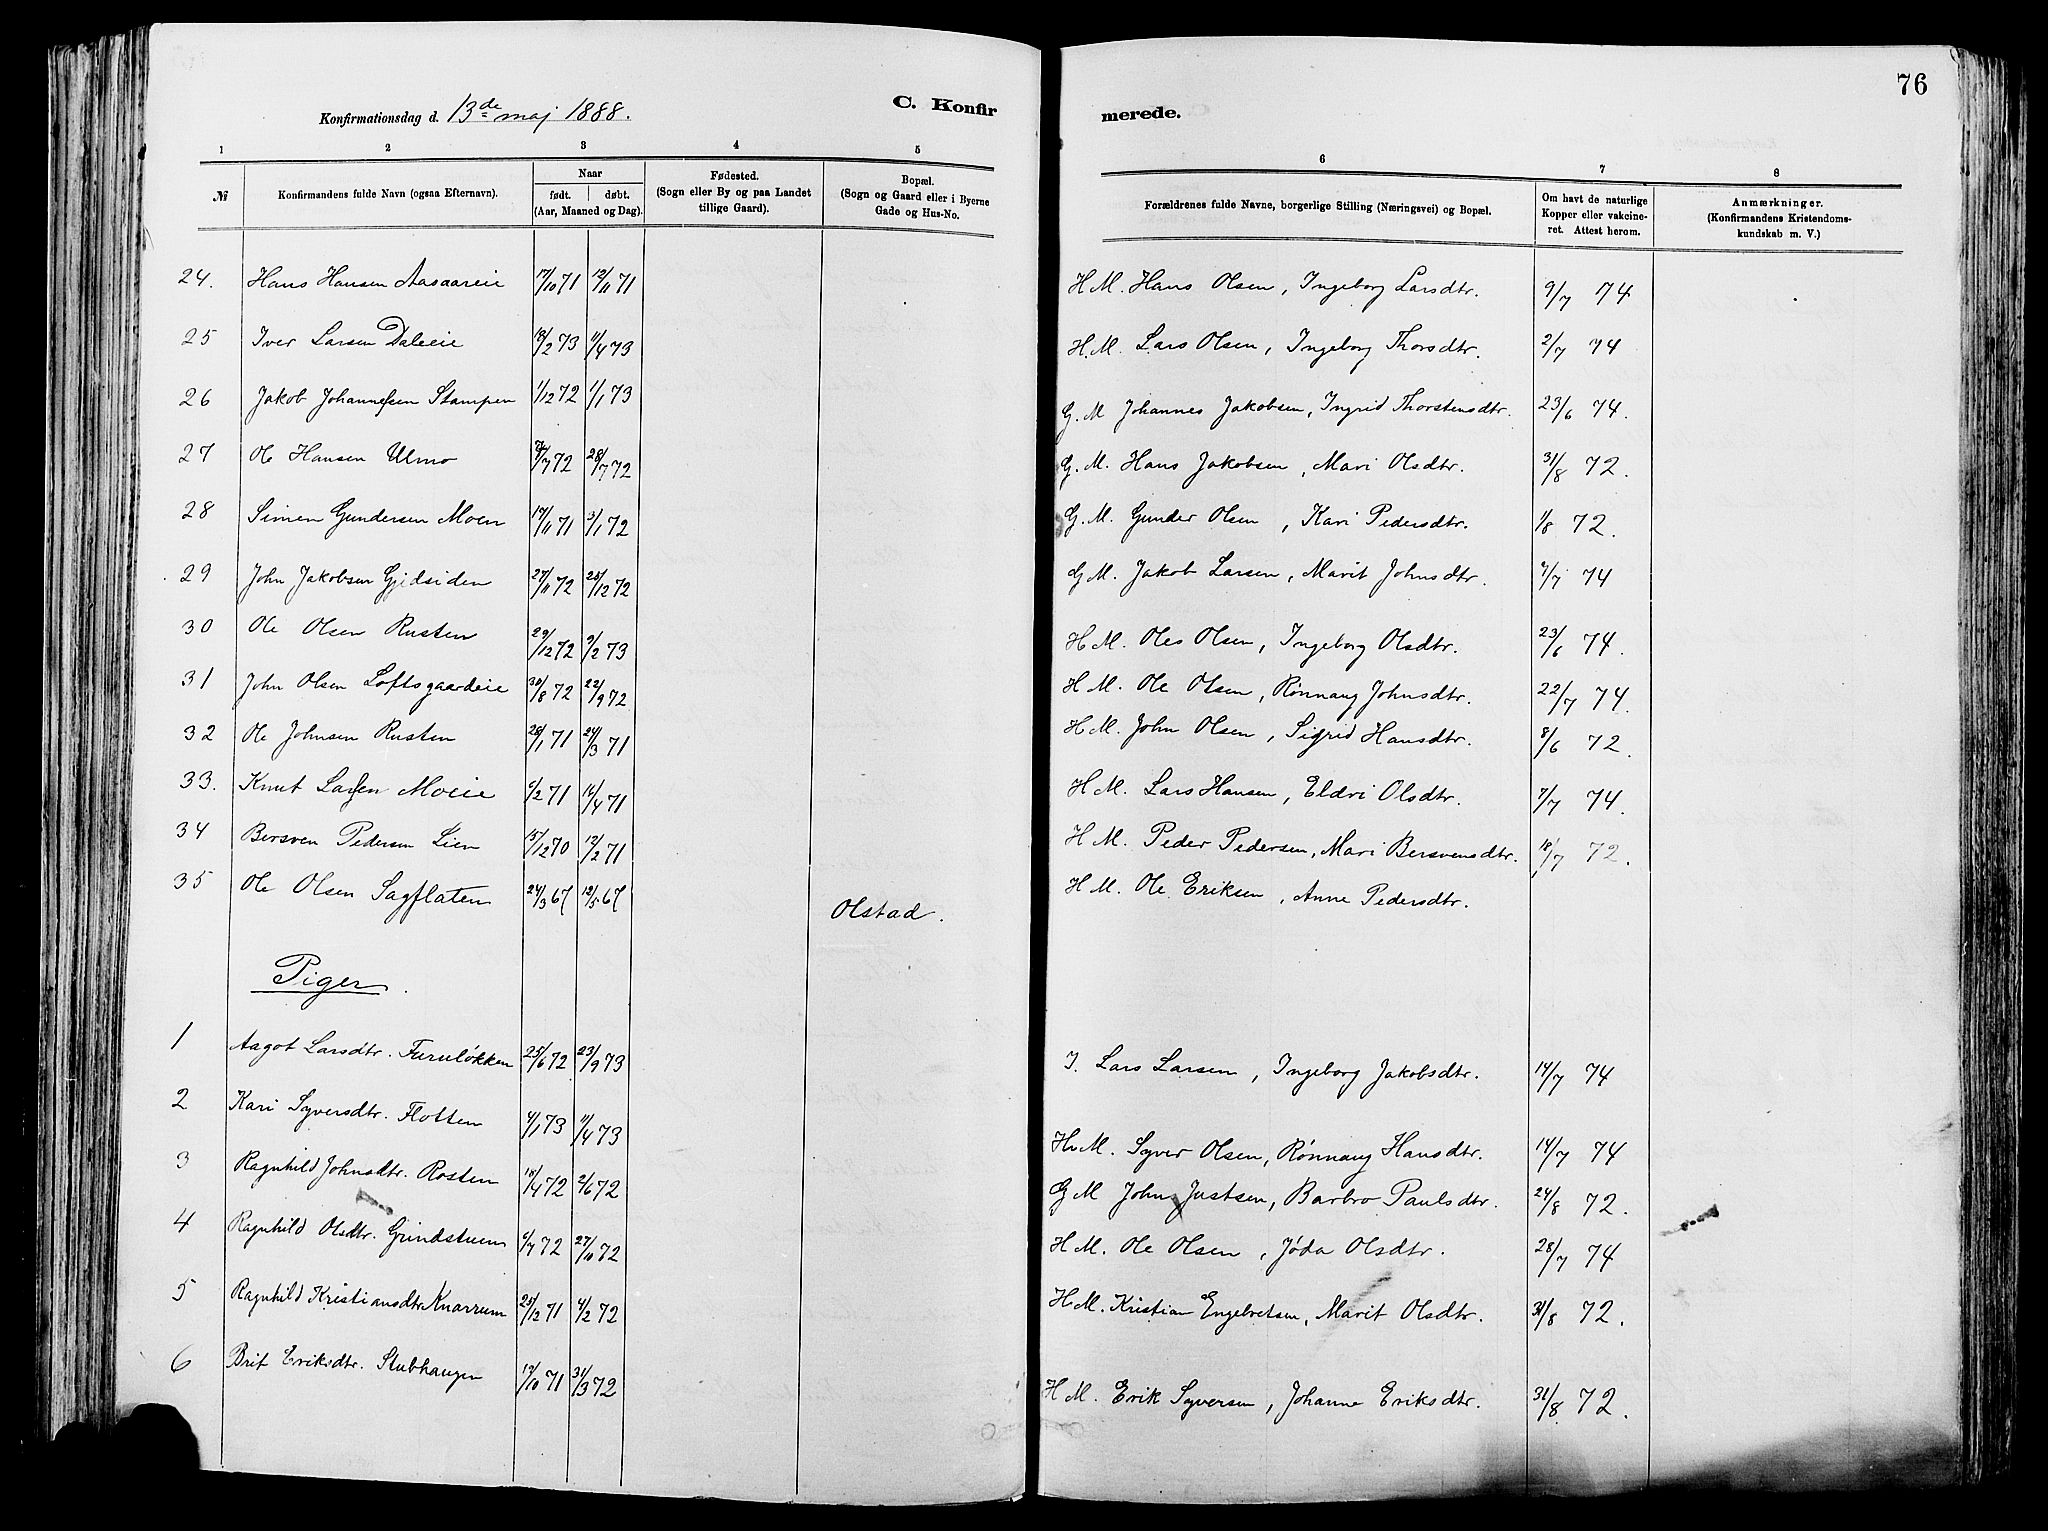 76
Konfirmationsdag d. 13de maj 1888.
C. Konfir
merede.
1 2 3 4 5 6 7 8
№ Konfirmandens fulde Navn (ogsaa Efternavn). Naar født. døbt. (Aar, Maaned og Dag). Fødested. (Sogn eller By og paa Landet tillige Gaard). Bopæl. (Sogn og Gaard eller i Byerne Gade og Hus-No. Forældrenes fulde Navne, borgerlige Stilling (Næringsvei) og Bopæl. Om havt de naturlige Kopper eller vakcineret. Attest herom. Anmærkninger. (Konfirmandens Kristendomskundskab m. V.)
24. Hans Hansen Aasaareie 17/10 71 12/11 71 H. M. Hans Olsen, Ingeborg Larsdtr. 9/7 74
25 Iver Larsen Daleeie 18/2 73 11/4 73 H. M. Lars Olsen, Ingeborg Thorsdtr. 2/7 74
26 Jakob Johannessen Stampen 1/12 72 1/1 73 G. M Johannes Jakobsen, Ingrid Thorstensdtr. 23/6 74.
27 Ole Hansen Ulmo /7 72 28/7 72 G. M. Hans Jakobsen, Mari Olsdtr. 31/8 72.
28 Simen Gundersen Moen 19/11 71 3/1 72 G. M. Gunder Olsen, Kari Pedersdtr. 1/8 72.
29 John Jakobsen Gjedsiden 27/11 72 25/12 72 G M. Jakob Larsen, Marit Johnsdtr. 7/7 74
30 Ole Olsen Rusten 29/12 72 9/2 73 H M. Oles Olsen, Ingeborg Olsdtr. 23/6 74.
31 John Olsen Loftsgaardeie 30/8 72 22/9 72 H M. Ole Olsen, Rønnaug Johnsdtr. 22/7 74.
32 Ole Johnsen Rusten 28/1 71 24/3 71 H M. John Olsen, Sigrid Hansdtr. 8/6 72.
33. Knut Larsen Moeie 6/2 71 16/4 71 H M. Lars Hansen, Eldri Olsdtr. 7/7 74.
34 Bersven Pedersen Lien 15/12 70 12/2 71 H M. Peder Pedersen, Mari Bersvensdtr. 18/7 72.
35 Ole Olsen Sagflaten 24/3 67 12/5 67 Olstad. H M. Ole Eriksen, Anne Pedersdtr.
Piger.
1 Aagot Larsdtr. Furuløkken 25/6 72 23/9 73 I. Lars Larsen, Ingeborg Jakobsdtr. 14/7 74
2 Kari Syversdtr. Flotten 4/1 73 11/4 73 H. M. Syver Olsen, Rønnaug Hansdtr. 14/7 74
3 Ragnhild Johnsdtr. Rosten 18/4 72 2/6 72 G M John Justsen, Barbro Paulsdtr. 24/8 72.
4 Ragnhild Olsdtr. Grindstuen 6/7 72 27/10 72 H M. Ole Olsen, Jøda Olsdtr. 28/7 74
5 Ragnhild Kristiansdtr Knarrum 25/12 71 4/2 72 H M. Kristian Engebretsen, Marit Olsdtr. 31/8 72.
6 Brit Eriksdtr. Stubhaugen 19/10 71 31/3 72 H M. Erik Syversen, Johanne Eriksdtr. 31/8 72.